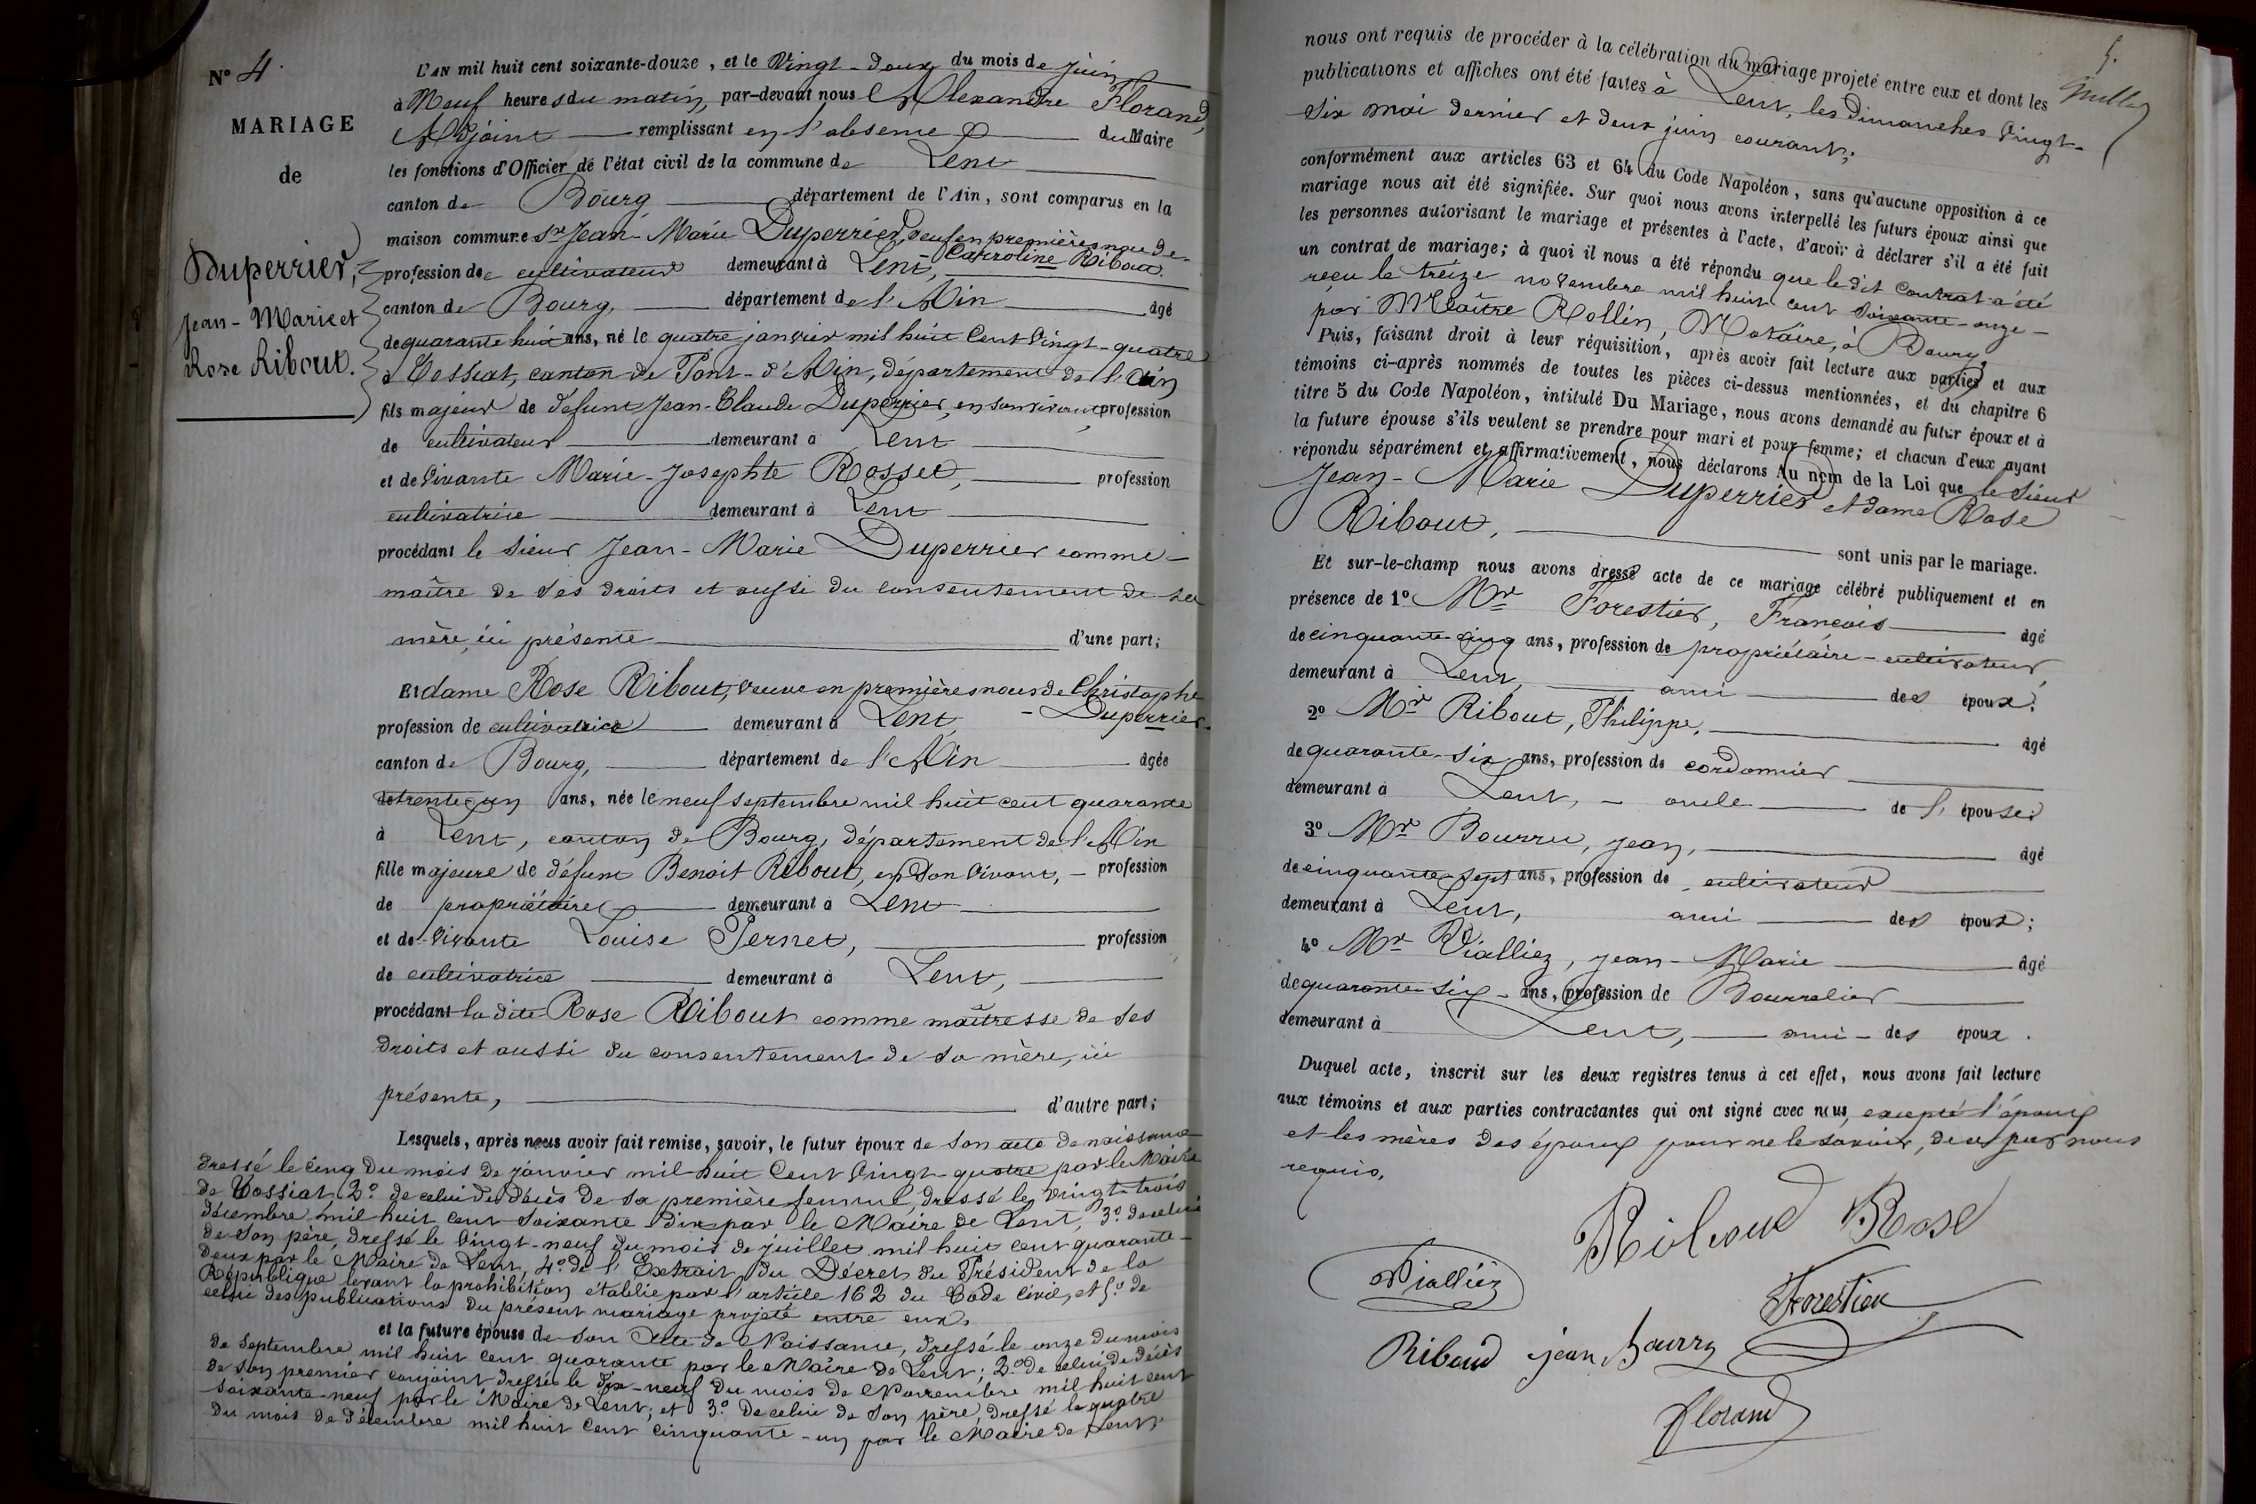 N° 4.
MARIAGE
de
Duperrier,
Jean-Marie et
Rose Ribout.
L'AN mil huit cent soixante-douze, et le Vingt-deux du mois de juin
à Neuf heures du matin, par-devant nous Alexandre Florand,
Adjoint remplissant en l'absence du Maire
les fonctions d'Officier de l'état civil de la commune de Lent
canton de Bourg département de l'Ain, sont comparus en la
maison commune Sr Jean-Marie Duperrier, veuf en premières noces de
Carroline Ribout.
profession de cultivateur demeurant à Lent,
canton de Bourg, département de l'Ain âgé
de quarante huit ans, né le quatre janvier mil huit cent vingt-quatre
à Tossiat, canton de Pont-d'Ain, département de l'Ain
fils majeur de défunt Jean-Claude Duperrier, en son vivant, profession
de cultivateur demeurant à Lent
et de vivante Marie-Josephte Rosset, profession
cultivatrice demeurant à Lent
procédant le sieur Jean-Marie Duperrier comme
maître de ses droits et aussi du consentement de sa
mère, ici présente d'une part;
Et dame Rose Ribout, veuve en premières noces de Christophe
Duperrier
profession de cultivatrice demeurant à Lent,
canton de Bourg, département de l'Ain âgée
de trente-un ans, née le neuf septembre mil huit cent quarante
à Lent, canton de Bourg, département de l'Ain
fille majeure de défunt Benoit Ribout, en son vivant, profession
de propriétaire demeurant à Lent
et de vivante Louise Pernet, profession
de cultivatrice demeurant à Lent,
procédant la dite Rose Ribout comme maîtresse de ses
droits et aussi du consentement de sa mère, ici
présente, d'autre part;
Lesquels, après nous avoir fait remise, savoir, le futur époux de son acte de naissance
dressé le cinq du mois de janvier mil huit cent vingt-quatre par le Maire
de Tossiat, 2° de celui du décès de sa première femme, dressé le vingt-trois
décembre mil huit cent soixante-dix par le Maire de Lent, 3° de celui
de son père, dressé le vingt-neuf du mois de juillet mil huit cent quarante-
deux par le Maire de Lent, 4° de l'Extrait du Décret du Président de la
République levant la prohibition établie par l'article 162 du Code Civil, et 5° de
celui des publications du présent mariage projeté entre eux,
et la future épouse de son Acte de Naissance, dressé le onze du mois
de septembre mil huit cent quarante par le Maire de Lent; 2° de celui de décès
de son premier conjoint dressé le dix-neuf du mois de Novembre mil huit cent
soixante-neuf par le Maire de Lent; et 3° de celui de son père, dressé le quatre
du mois de décembre mil huit cent cinquante-un par le Maire de Lent,
5.
nous ont requis de procéder à la célébration du mariage projeté entre eux et dont les
publications et affiches ont été faites à Lent, les dimanches vingt-
six mai dernier et deux juin courant;
conformément aux articles 63 et 64 du Code Napoléon, sans qu'aucune opposition à ce
mariage nous ait été signifiée. Sur quoi nous avons interpellé les futurs époux ainsi que
les personnes autorisant le mariage et présentes à l'acte, d'avoir à déclarer s'il a été fait
un contrat de mariage; à quoi il nous a été répondu que le dit contrat a été
reçu le treize novembre mil huit cent soixante-onze
par Maître Rollin, Notaire, à Bourg,
Puis, faisant droit à leur réquisition, après avoir fait lecture aux parties et aux
témoins ci-après nommés de toutes les pièces ci-dessus mentionnées, et du chapitre 6
titre 5 du Code Napoléon, intitulé Du Mariage, nous avons demandé au futur époux et à
la future épouse s'ils veulent se prendre pour mari et pour femme; et chacun d'eux ayant
répondu séparément et affirmativement, nous déclarons Au nom de la Loi que le sieur
Jean-Marie Duperrier et dame Rose
Ribout, sont unis par le mariage.
Et sur-le-champ nous avons dressé acte de ce mariage célébré publiquement et en
présence de 1° Mr Forestier, François âgé
de cinquante-cinq ans, profession de propriétaire-cultivateur,
demeurant à Lent, ami des époux.
2° Mr Ribout, Philippe, âgé
de quarante-six ans, profession de cordonnier
demeurant à Lent, oncle de l'épouse;
3° Mr Bourru, jean, âgé
de cinquante-sept ans, profession de cultivateur
demeurant à Lent, ami des époux;
4° Mr Vialliez, jean-Marie âgé
de quarante-six ans, profession de Bourrelier
demeurant à Lent, ami des époux.
Duquel acte, inscrit sur les deux registres tenus à cet effet, nous avons fait lecture
aux témoins et aux parties contractantes qui ont signé avec nous, excepté l'époux
et les mères des époux pour ne le savoir, de ce par nous
requis.
Riboud Rose
Vialliez
Forestier
Riboud jean Bourru
Florand